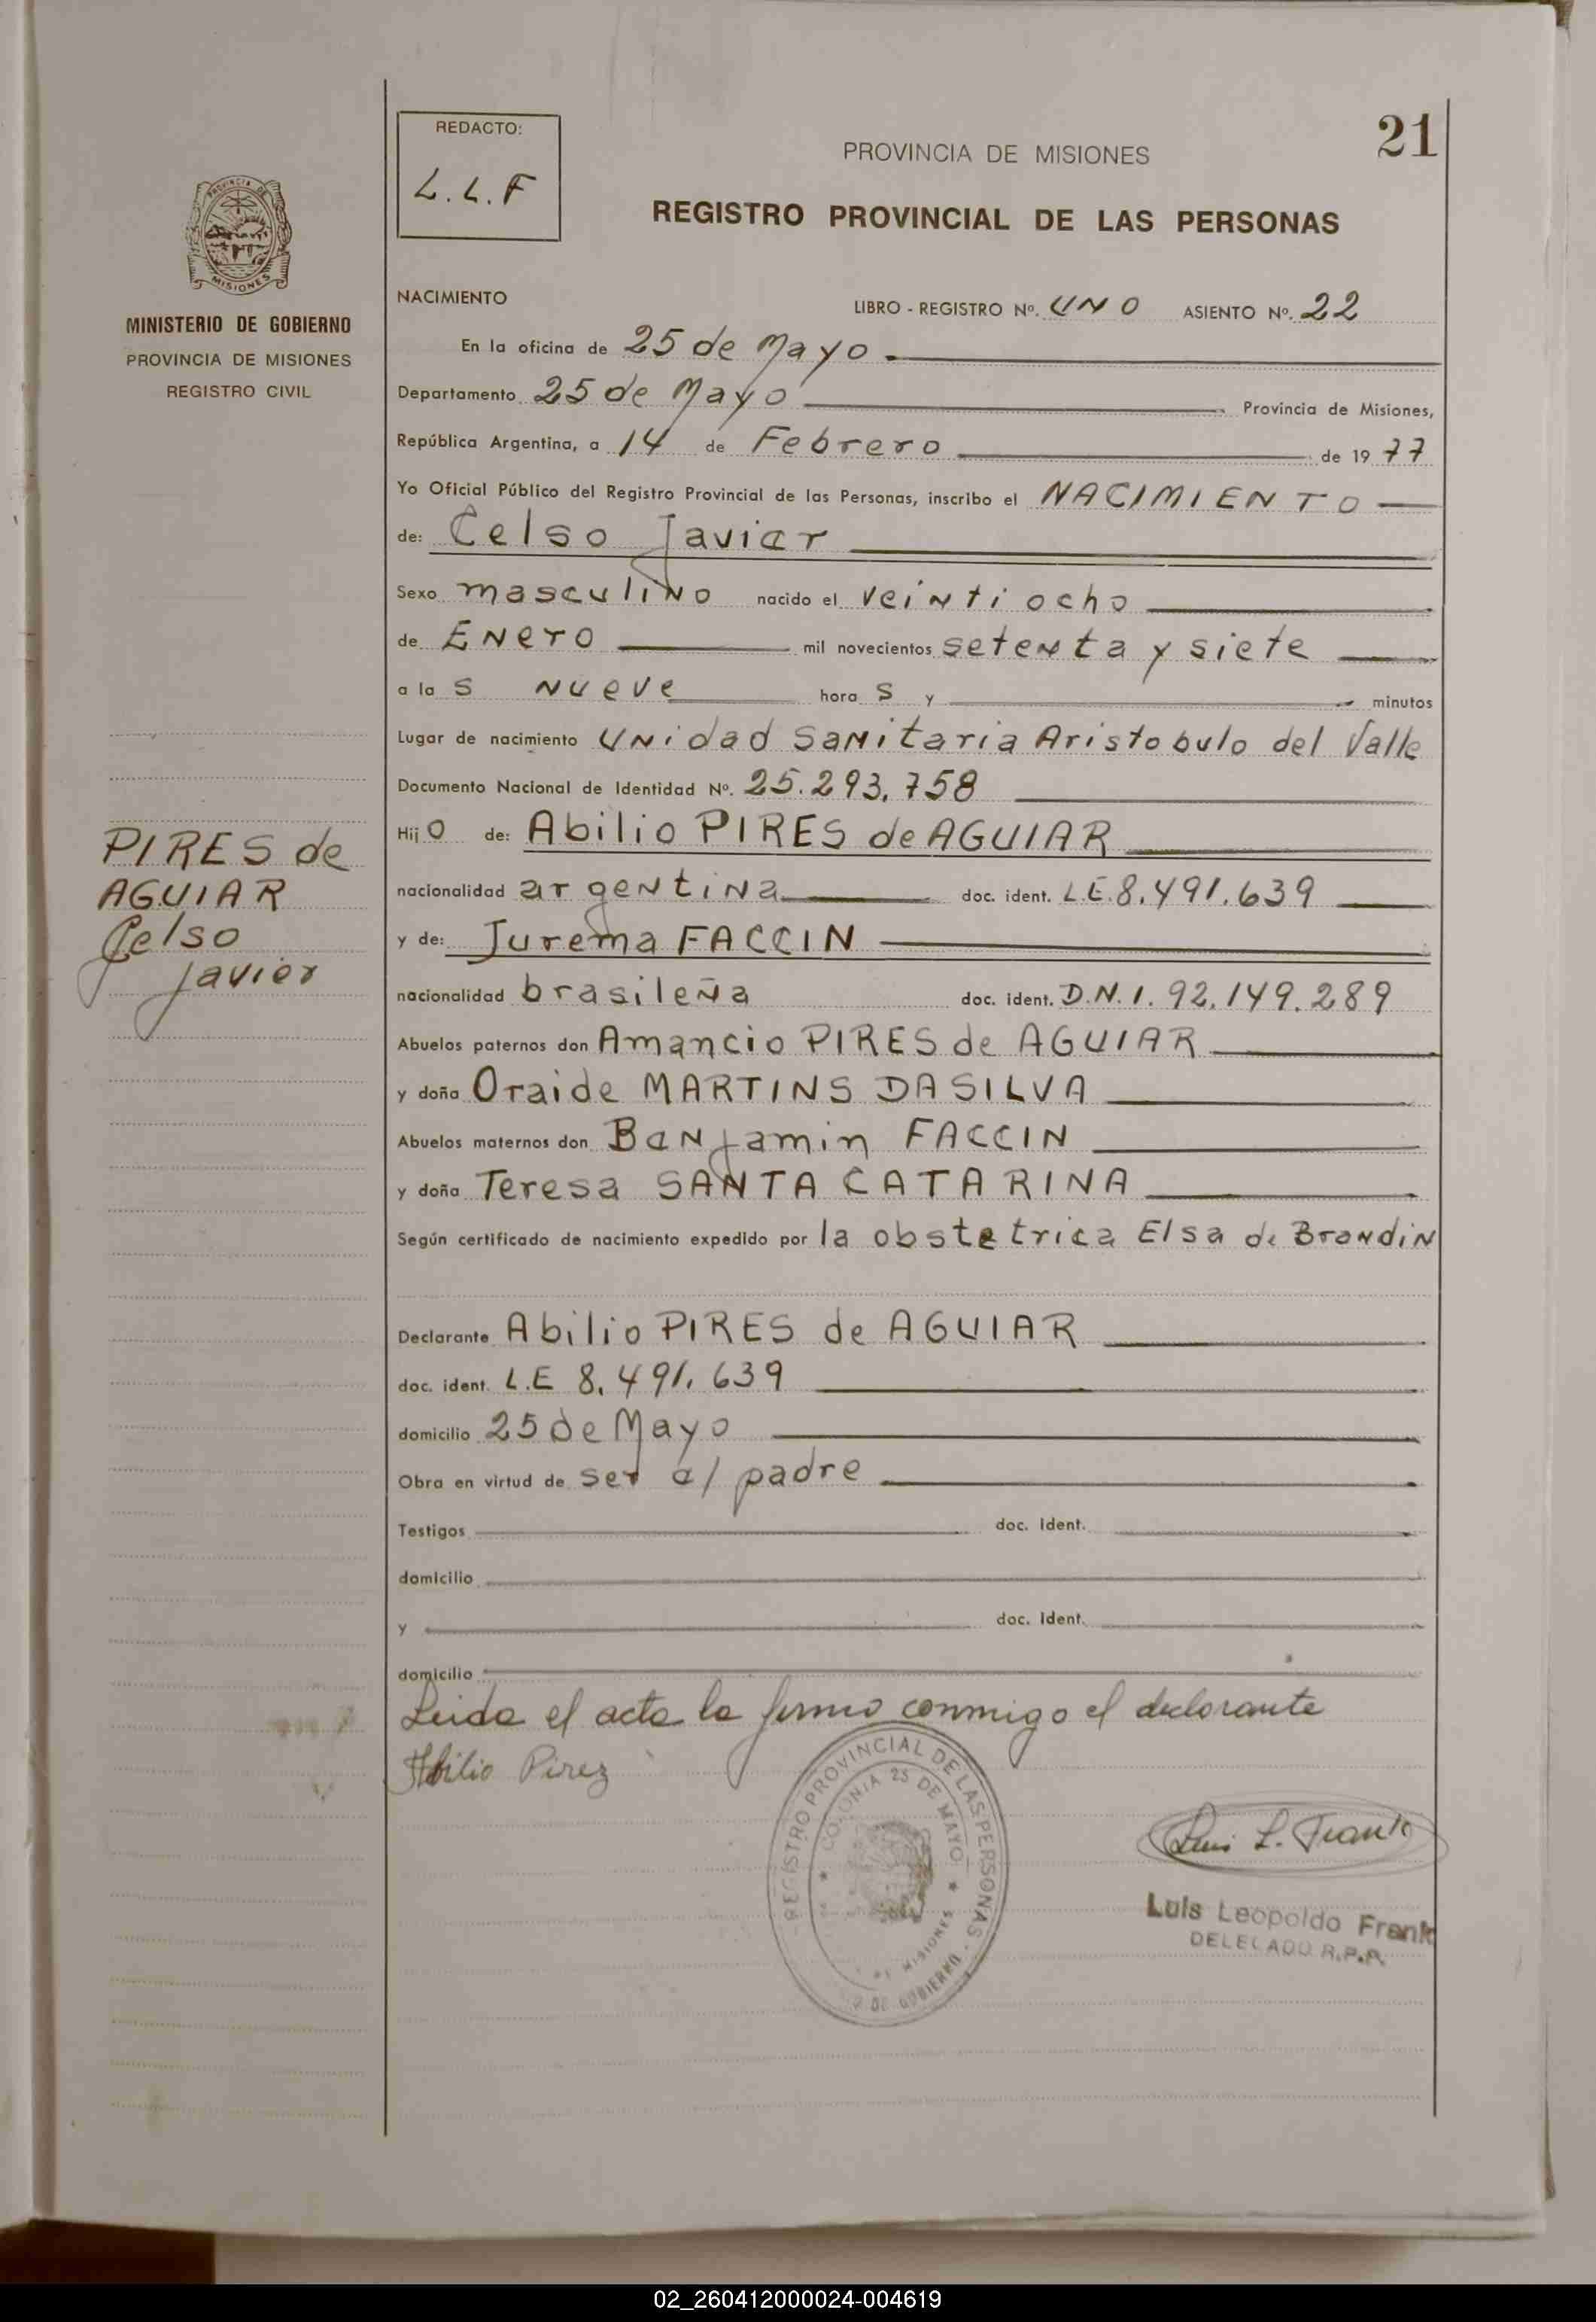 21
REDACTO:
L.L.F
PROVINCIA DE MISIONES
REGISTRO PROVINCIAL DE LAS PERSONAS
PROVINCIA DE
MISIONES
MINISTERIO DE GOBIERNO
PROVINCIA DE MISIONES
REGISTRO CIVIL
NACIMIENTO LIBRO - REGISTRO Nº. UNO ASIENTO Nº. 22
En la oficina de 25 de Mayo
Departamento 25 de Mayo Provincia de Misiones,
República Argentina, a 14 de Febrero de 1977
Yo Oficial Público del Registro Provincial de las Personas, inscribo el NACIMIENTO
de: Celso Javier
Sexo masculino nacido el veinti ocho
de Enero mil novecientos setenta y siete
a la s nueve hora s y minutos
Lugar de nacimiento Unidad Sanitaria Aristobulo del Valle
Documento Nacional de Identidad Nº. 25.293.758
Hijo de: Abilio PIRES de AGUIAR
nacionalidad argentina doc. ident. L.E. 8.491.639
y de: Jurema FACCIN
nacionalidad brasileña doc. ident. D.N.I. 92.149.289
Abuelos paternos don Amancio PIRES de AGUIAR
y doña Oraide MARTINS DA SILVA
Abuelos maternos don Benjamin FACCIN
y doña Teresa SANTA CATARINA
Según certificado de nacimiento expedido por la obstetrica Elsa de Brondin
Declarante Abilio PIRES de AGUIAR
doc. ident. L.E 8.491.639
domicilio 25 de Mayo
Obra en virtud de ser el padre
Testigos doc. ident.
domicilio
y doc. ident.
domicilio
Leida el acta la firmo conmigo el declarante
Abilio Pirez
PIRES de
AGUIAR
Celso
Javier
REGISTRO PROVINCIAL DE LAS PERSONAS
COLONIA 25 DE MAYO
MISIONES
DE GOBIERNO
Luis L. Frank
Luis Leopoldo Frank
DELEGADO R.P.P.
02_260412000024-004619